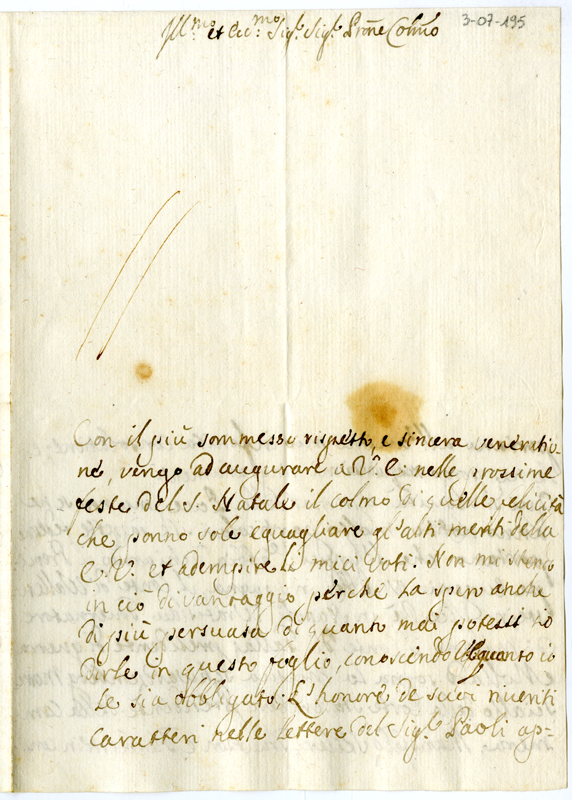 3-07-195
Ill.mo et Ecc.mo Sig.r Sig.r Prone Colmo
Con il più sommesso rispetto, e sincera veneratio-
ne, vengo ad augurare a V.a E. nelle prossime
feste del S. Natale il colmo di quelle felicità
che ponno sole equagliare gl'alti meriti della
E.V. et adempire li miei voti. Non mi stendo
in ciò di vantaggio perche La spero anche
di più persuasa di quanto mai potessi
darle in questo foglio, conoscendo quanto io
Le sia obbligato. L'honore de suoi riveriti
caratteri nelle Lettere del Sig.r Paoli ap=